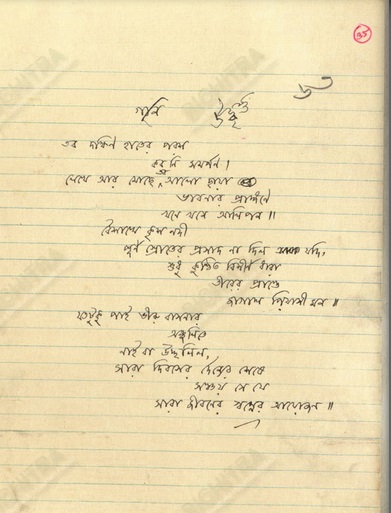 উদ্বৃত্ত
তব দক্ষিণ হাতের পরশ
কর নি সমর্পণ।
লেখে আর মোছে আলো ছায়া
ভাবনার প্রাঙ্গণে
খনে খনে আলিপন॥
বৈশাখে কৃশ নদী
পূর্ণ স্রোতের প্রসাদ না দিল যদি,
শুধু কুণ্ঠিত বিশীর্ণ ধারা
তীরের প্রান্তে
জাগালো পিয়াসী মন॥
যতটুকু পাই ভীরু বাসনার
অঞ্জলিতে
নাই বা উচ্ছলিল,
সারা দিবসের দৈন্যের শেষে
সঞ্চয় সে যে
সারা জীবনের স্বপ্নের আয়োজন॥